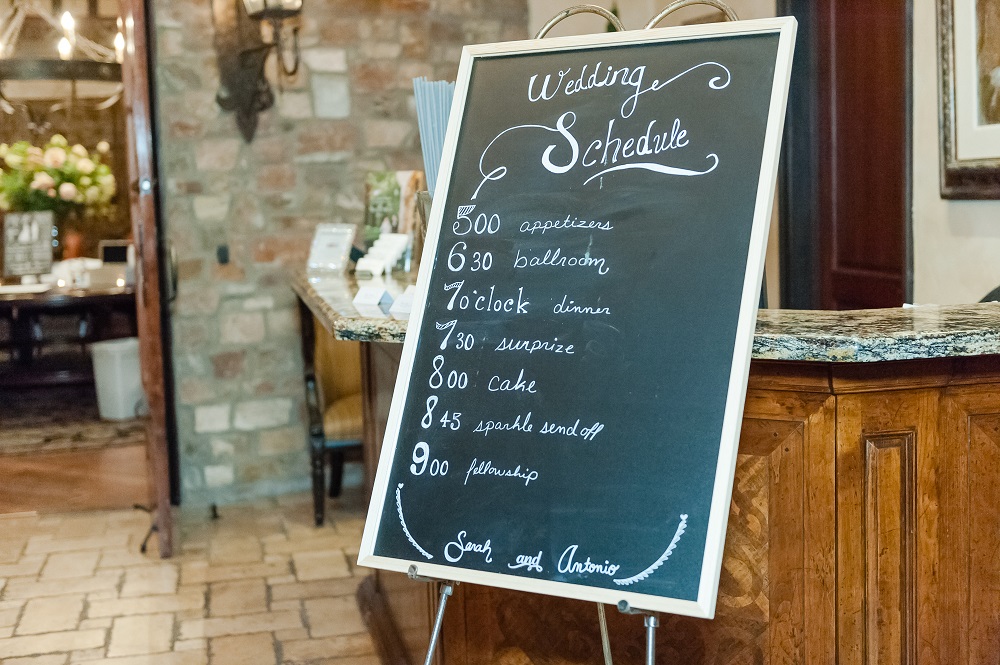 Wedding
Schedule
500 appetizers
630 ballroom
7o'clock dinner
730 surprize
800 cake
845 sparkle send off
900 fellowship
Sarah and Antonio